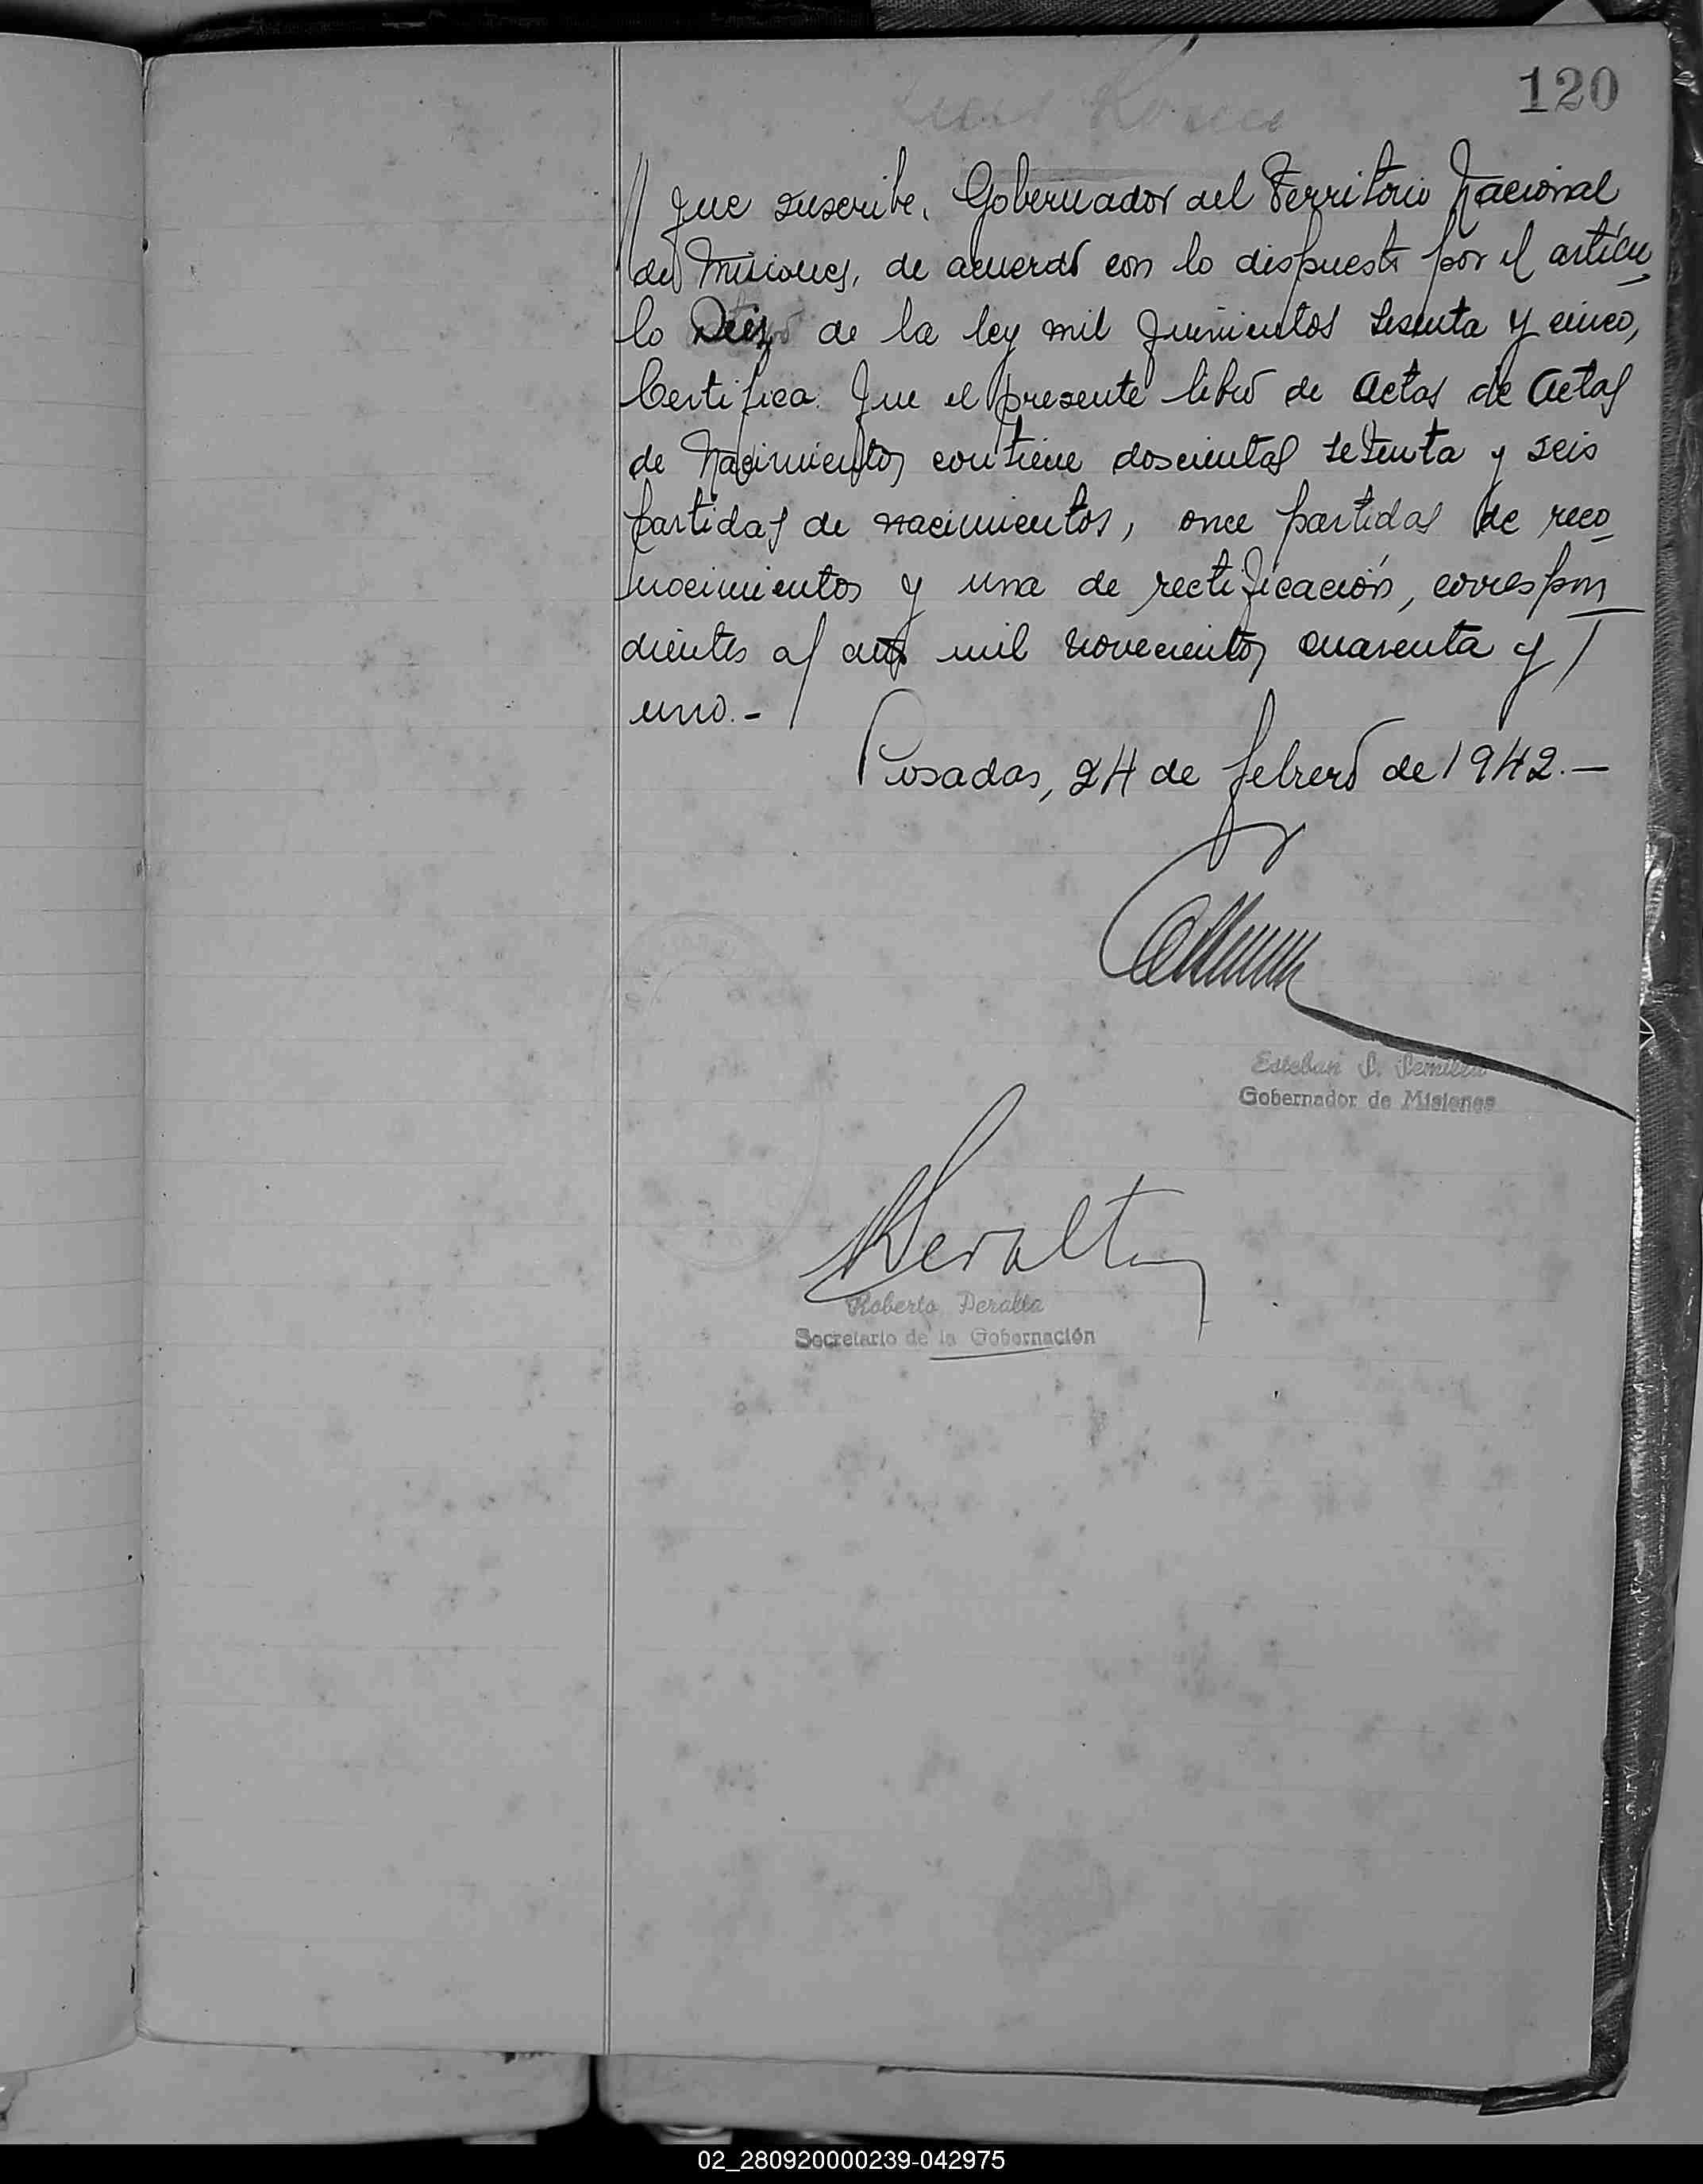 120
// que suscribe, Gobernador del Territorio Nacional
de Misiones, de acuerdo con lo dispuesto por el artícu
lo Diez de la ley mil quinientos sesenta y cinco,
Certifica: Que el presente libro de actas de actas
de Nacimientos contiene doscientas setenta y seis
partidas de nacimientos, once partidas de reco
nocimientos y una de rectificación, correspon
dientes al año mil novecientos cuarenta y /
uno.-
Posadas, 24 de febrero de 1942.—
Esteban S. Semilla
Gobernador de Misiones
Peralta
Roberto Peralta
Secretario de la Gobernación
02_280920000239-042975